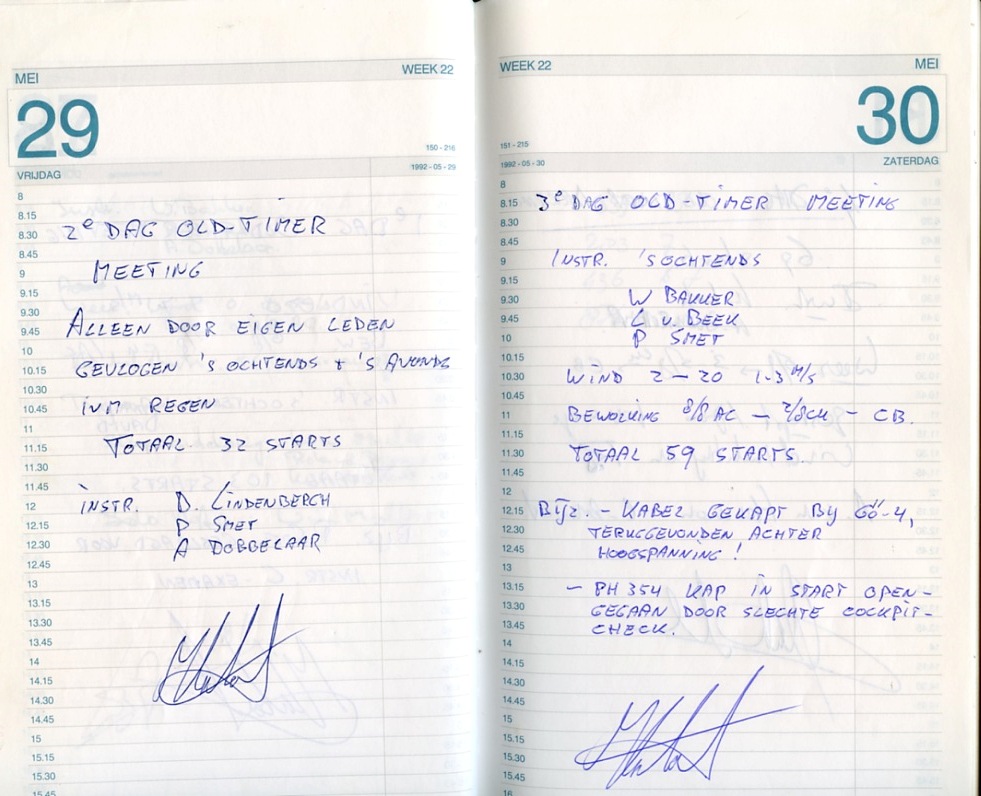 MEI WEEK 22
29
150 - 216
VRIJDAG 1992 - 05 - 29
8
8.15
8.30
8.45
9
9.15
9.30
9.45
10
10.15
10.30
10.45
11
11.15
11.30
11.45
12
12.15
12.30
12.45
13
13.15
13.30
13.45
14
14.15
14.30
14.45
15
15.15
15.30
2e DAG OLD-TIMER
MEETING
ALLEEN DOOR EIGEN LEDEN
GEVLOGEN 'S OCHTENDS + 'S AVONDS
IVM REGEN
TOTAAL 32 STARTS
INSTR. D. LINDENBERGH
P SMET
A DOBBELAAR
WEEK 22 MEI
30
151 - 215
1992 - 05 - 30 ZATERDAG
8
8.15
8.30
8.45
9
9.15
9.30
9.45
10
10.15
10.30
10.45
11
11.15
11.30
11.45
12
12.15
12.30
12.45
13
13.15
13.30
13.45
14
14.15
14.30
14.45
15
15.15
15.30
15.45
16
3e DAG OLD-TIMER MEETING
INSTR. 'S OCHTENDS
W BAKKER
C v. BEEK
P SMET
WIND 2 – 20 1-3 M/S
BEWOLKING 8/8 AC – 2/8 CU – CB.
TOTAAL 59 STARTS.
BIJZ. – KABEL GEKAPT BY GÖ-4,
TERUGGEVONDEN ACHTER
HOOGSPANNING !
– PH 354 KAP IN START OPEN-
GEGAAN DOOR SLECHTE COCKPIT-
CHECK.